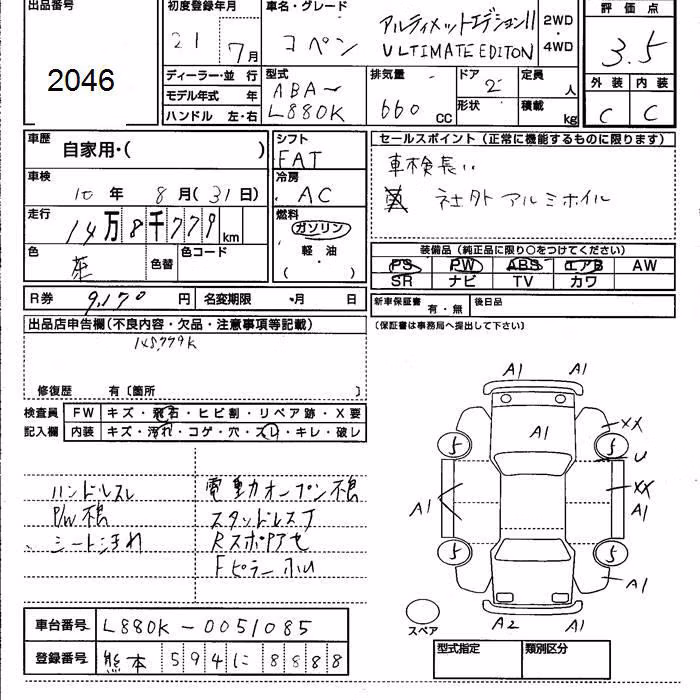 出品番号
2046
初度登録年月
21 7月
車名・グレード
コペン
アルティメットエディションII
ULTIMATE EDITON
2WD
・
4WD
評価点
3.5
外装 内装
C C
ディーラー・並 行
モデル年式 年
ハンドル 左・右
型式
ABA-
L880K
排気量
660 CC
ドア
2
形状
定員
人
積載
kg
車歴
自家用・( )
車検
10年 8月(31日)
走行
14万8千779km
色
茶
色替
色コード
R券 9,170円 名変期限 ・月 日
シフト
FAT
冷房
AC
燃料
ガソリン
軽・油
( ・ )
セールスポイント(正常に機能するものに限ります)
車検長い
社外アルミホイル
装備品(純正品に限り○をつけてください)
PS PW ABS エアB AW
SR ナビ TV カワ
新車保証書 有・無 後日品
(保証書は事務局へ提出して下さい)
出品店申告欄(不良内容・欠品・注意事項等記載)
148,779K
修復歴 有〔箇所 〕
検査員 FW キズ・飛石・ヒビ割・リペア跡・X要
記入欄 内装 キズ・汚れ・コゲ・穴・スレ・キレ・破レ
ハンドルスレ
P/W不良
シート汚れ
電動オープン不良
スタッドレスT
Fピラー
A1 A1
A1
XX
U
XX
A1
A1
A1
5 5
5 5
A2 A1
スペア
車台番号 L880K-0051085
登録番号 熊本 594 に 8888
型式指定 類別区分